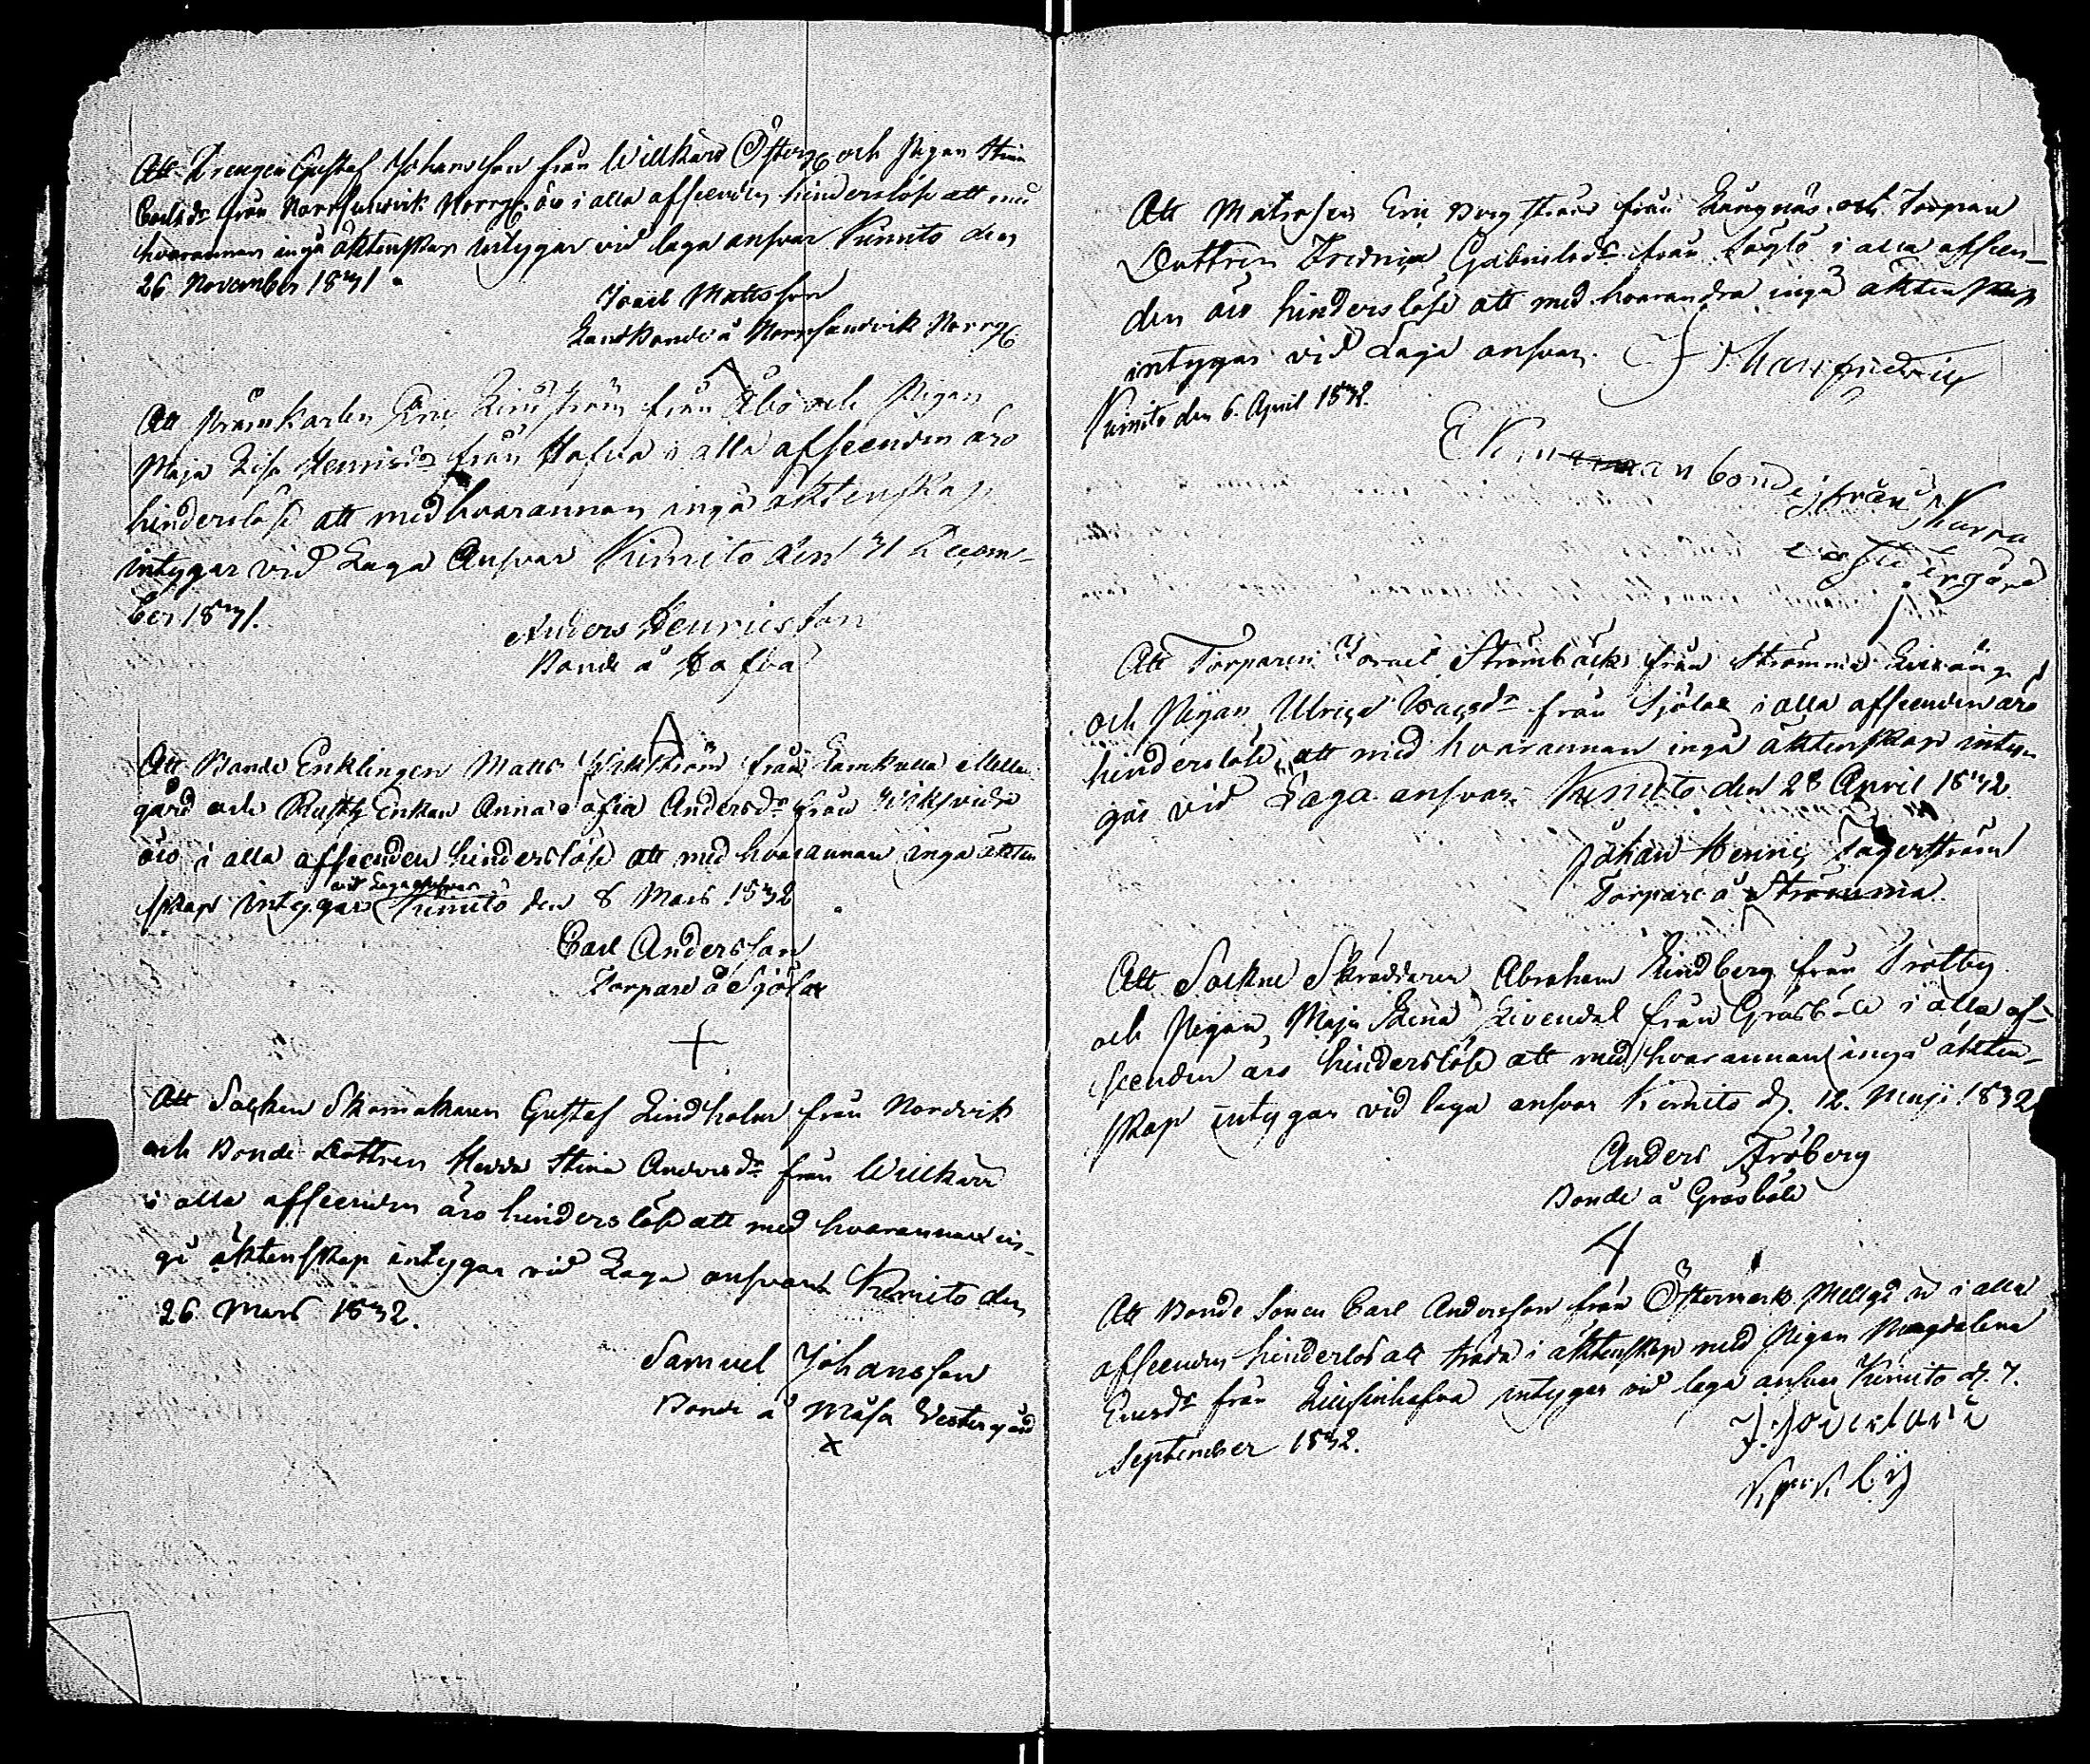 Att Drengen Gustaf Johansson från WillkärrÖsterg och Pigan Stina
Carlsdr från Norrsundvik Norrg. äro i alla afseenden hinderslöse att med
hvarannan ingå äktenskap intygar vid laga ansvar Kimito den
26 November 1831.
Israel Mattsson
Landbonde å Norrsundvik Norrg
Att Pråmkarlen Eric Lindström från Åbo och Pigan
Maja Lisa Henricsdr från Hafva i alla afseenden äro
hinderslöse att med hvarannan ingå äktenskap
intygar vid Laga Ansvar Kimito den 31 Decem-
ber 1831.
Anders Henricsson
Bonde å Hafva
Att Bonde Enklingen Matts Wikström från Lamkulla Mellan
gård och Rustg Enkan Anna Sofia Andersdr från Wiksvidja
äro i alla afseenden hinderslöse att med hvarannan ingå äkten
skap intygar vid Laga ansvar Kimito den 8 Mars 1832
Carl Andersson
Torpare å Sjölax
Att Socken Skomakaren Gustaf Lindholm från Nordvik
och Bonde Dottren Hedda Stina Andersdr från Willkärr
i alla afseenden äro hinderslöse att med hvarannan in-
gå äktenskap intygar vid Laga ansvar Kimito den
26 Mars 1832.
Samuel Johansson
Bonde å Måsa Vestergård
x
Att Matrosen Eric Bergström från Långnäs och Torpare
Dottren Fredrica Gabrielsdr från i alla afseen-
den äro hinderslöse att med hvarandra ingå äktenskap
intygar vid Laga ansvar. Johan Fredric
Kimito den 6. April 1832.
Ekman bonde från Skarra
östergård
Att Torparen Israel Strömbäck från Strömma
och Pigan Ulrica Isacsdr från Sjölax i alla afseenden äro
hinderslöse att med hvarannan ingå äktenskap inty-
gar vid Laga ansvar Kimito den 28 April 1832
Johan Henric Fagerström
Torpare å Strömma
Att Sockne Skräddaren Abraham Lindberg från Trotby
och Pigan Maja Lena Livendal från Gräsböle i alla af-
seenden äro hinderslöse att med hvarannan ingå äkten-
skap intygar vid laga ansvar Kimito d. 12. Maji 1832
Anders Fröberg
Bonde å Gräsböle
Att Bonde Sonen Carl Andersson från Östermark Mellgd är i alla
afseenden hinderlös att träda i äktenskap med Pigan Magdalena
Ericsdr från intygar vid laga ansvar Kimito d. 7.
September 1832.